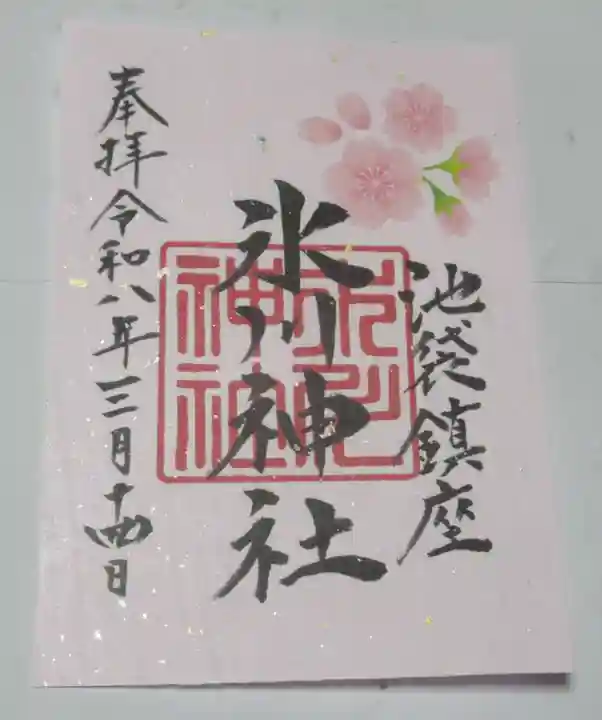 池袋鎮座
氷川神社
奉拝令和八年三月十四日
氷川
神社